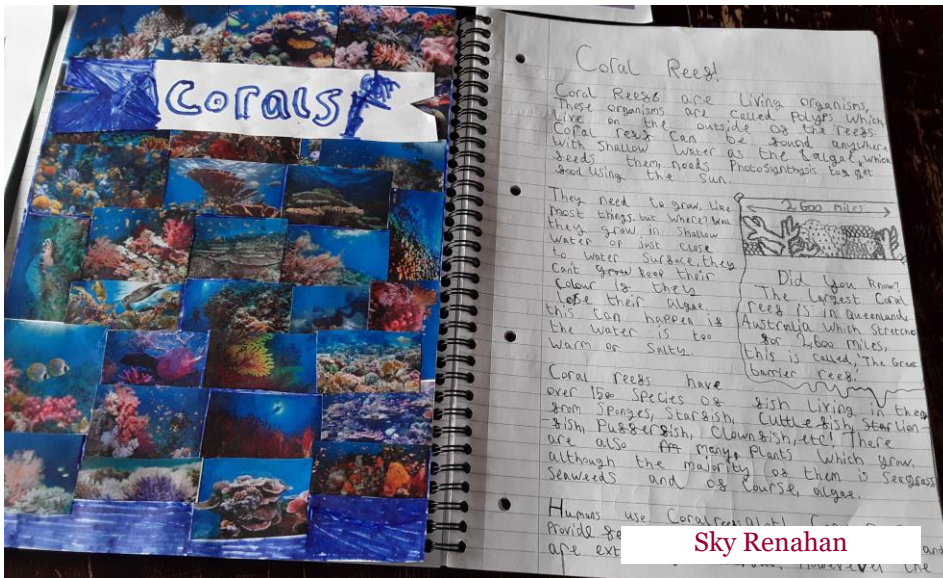 Corals
Coral Reef!
Coral Reefs are living organisms,
These organisms are called Polyps which
live on the outside of the reefs.
Coral reefs can be found anywhere
with shallow water as the algae, which
feeds them, needs Photosynthasis to get
food using the sun.
They need to grow, like
most things, but where? Well
they grow in shallow
water or just close
to water surface, they
cant grow keep their
colour if they
lose their algae.
this can happen if
the water is too
warm or salty.
2,600 miles
Did you know?
The largest Coral
reef is in Queensland
Australia which stretche
for 2,600 miles,
this is called, 'The Grea
barrier reef.'
Coral reefs have
over 1500 species of fish living in them
from Sponges, Starfish, Cuttlefish, Star Lion-
-fish, Pufferfish, Clownfish, etc! There
are also many, plants which grow,
although the majority of them is Seegrass,
Seaweeds and of course, algae.
Humans use Coral reefs alot!
Provide
are ext However the
and
Sky Renahan